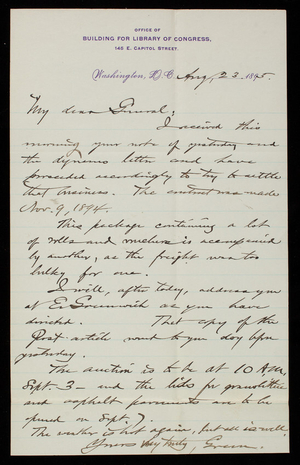 OFFICE OF
BUILDING FOR LIBRARY OF CONGRESS,
145 E. CAPITOL STREET.
Washington, D.C. Aug. 23. 1895.
My dear General:
I received this
morning your note of yesterday and
the dynamo letter and have
proceeded accordingly to try to settle
that business. The contract was made
Nov. 9, 1894.
This package containing a lot
of rolls and is accompanied
by another, as the freight was too
bulky for one.
I will, after today, address you
at E. Greenwich as you have
directed. That copy of the
Post article went to you day before
yesterday.
The auction is to be at 10 A.M.
Sept. 3 – and the bids for granolithic
and asphalt pavements are to be
opened on Sept. 7.
The weather is hot again, but all is well.
Yours very truly, Green.